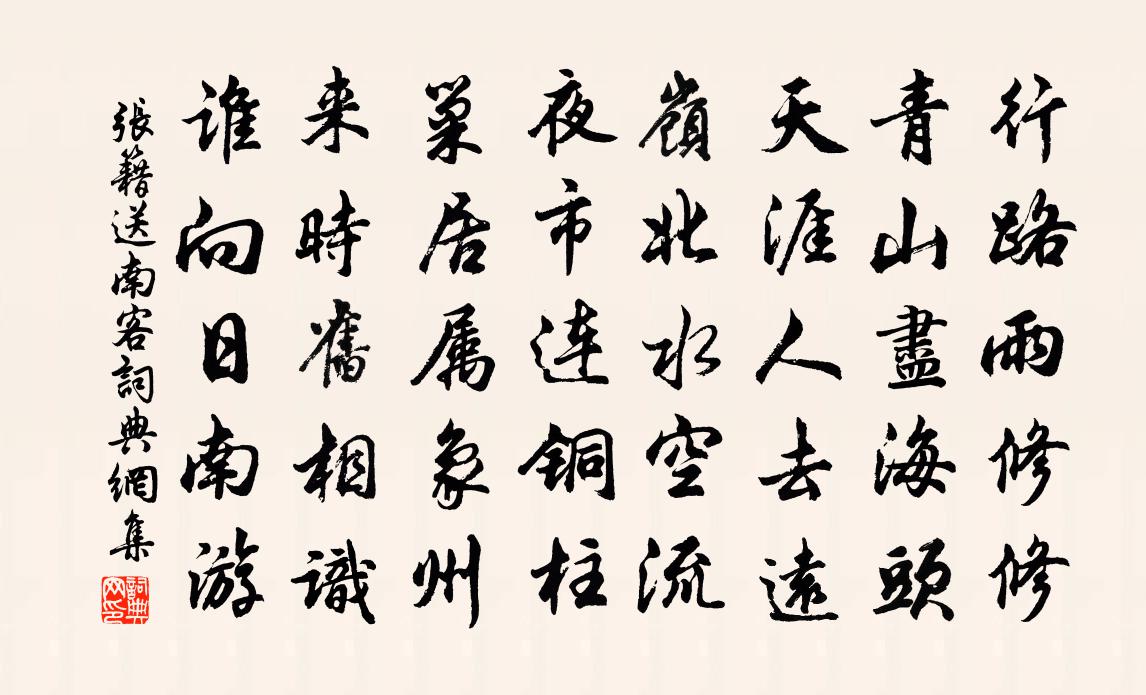 行路雨修修
青山盡海頭
天涯人去遠
嶺北水空流
夜市連銅柱
巢居属象州
来時舊相識
誰向日南游
張籍送南客詞典網集
詞典网印